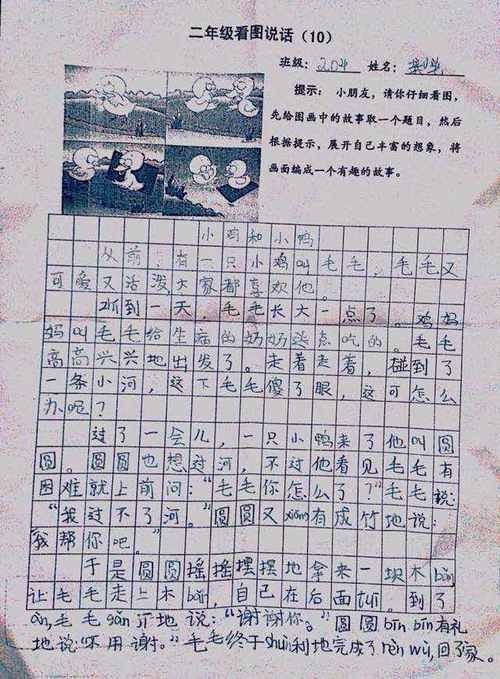 二年级看图说话（10）
班级：204 姓名：
提示：小朋友，请你仔细看图，
先给图画中的故事取一个题目，然后
根据提示，展开自己丰富的想象，将
画面编成一个有趣的故事。
小鸡和小鸭
从前，有一只小鸡叫毛毛，毛毛又
可爱又活泼大家都喜欢他。
到一天，毛毛长大一点了。鸡妈
妈叫毛毛给生病的奶奶送点吃的。毛毛
高高兴兴地出发了。走着走着，碰到了
一条小河，这下毛毛傻了眼，这可怎么
办呢？
过了一会儿，一只小鸭来了他叫圆
圆。圆圆也想过河，不过他看见毛毛有
困难就上前问：“毛毛你怎么了？”毛毛说：
“我过不了河。”圆圆又xiōng有成竹地说：
“我帮你吧。”
于是圆圆摇摇摆摆地拿来一块木bǎn，
让毛毛走上木bǎn，自己在后面tuī。到了
àn，毛毛gǎn地说：“谢谢你。”圆圆bīn bīn有礼
地说“不用谢。”毛毛终于shùn利地完成了rèn wù，回了家。